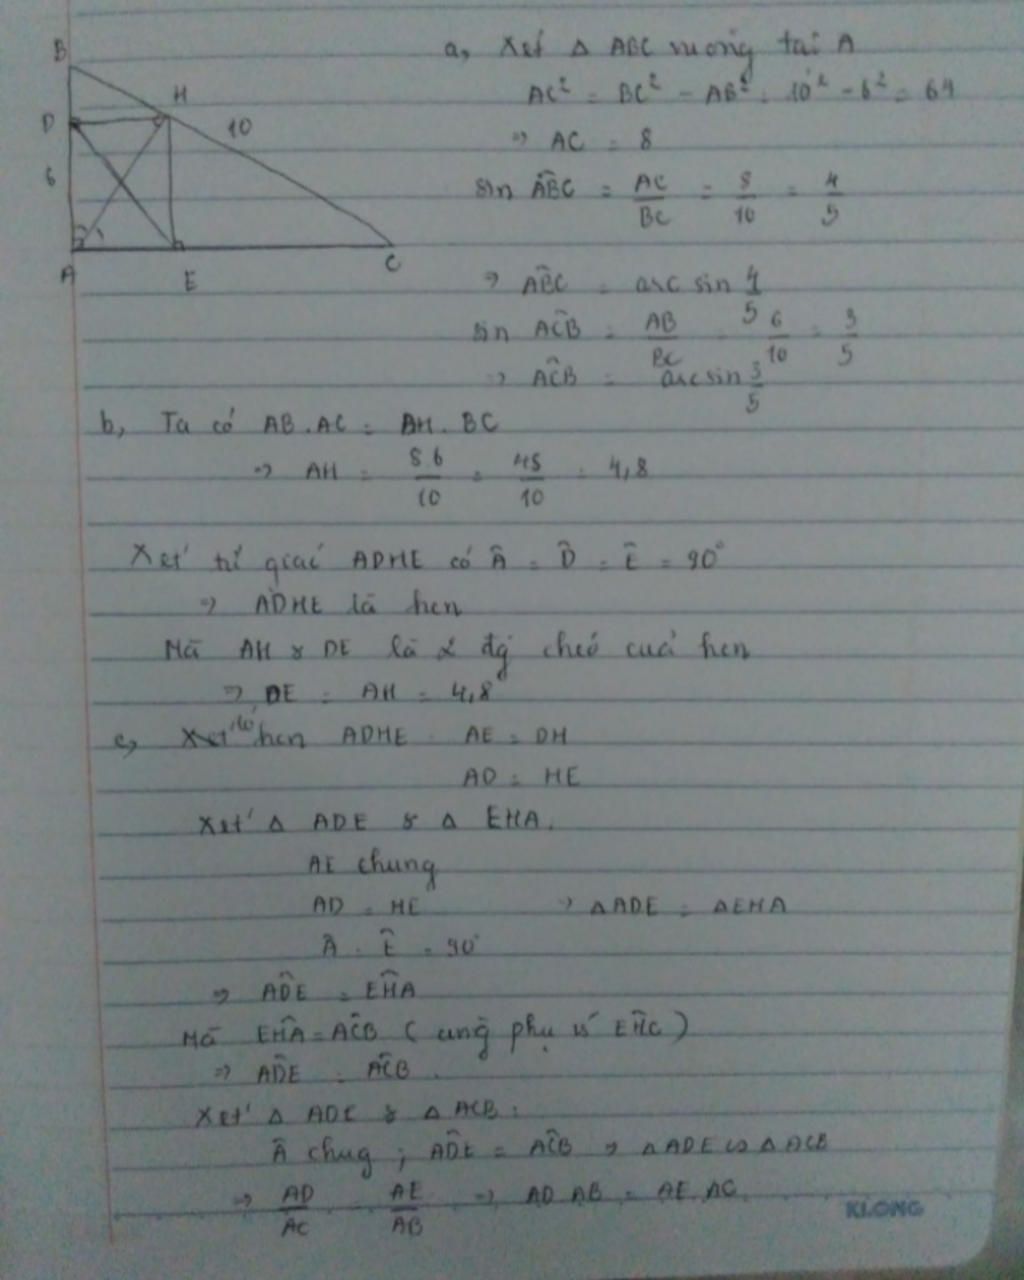 B
H
D
10
6
A
E
C
a, Xét Δ ABC vuông tại A
AC² = BC² - AB² = 10² - 6² = 64
=> AC = 8
sin ABC = AC/BC = 8/10 = 4/5
=> ABC = arc sin 4/5
sin ACB = AB/BC = 6/10 = 3/5
=> ACB = arc sin 3/5
b, Ta có AB.AC = AH.BC
=> AH = 8.6/10 = 48/10 = 4,8
Xét tứ giác ADHE có Â = D̂ = Ê = 90°
=> ADHE là hcn
Mà AH & DE là 2 đg chéo của hcn
=> DE = AH = 4,8
c, hcn ADHE AE = DH
AD = HE
Xét Δ ADE & Δ EHA.
AE chung
AD = HE => ΔADE = ΔEHA
Â = Ê = 90°
=> ADE = EHA
Mà EHA = ACB (cùng phụ vs EHC)
=> ADE = ACB.
Xét Δ ADE & Δ ACB:
Â chug ; ADE = ACB => ΔADE ∽ ΔACB
=> AD/AC = AE/AB => AD.AB = AE.AC.
KLONG